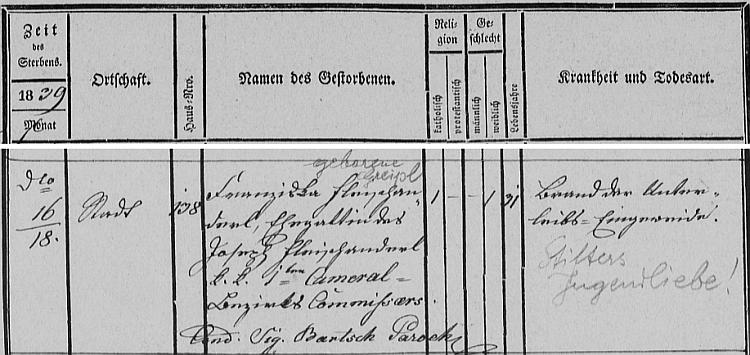 Zeit
des
Sterbens.
1839
Monat
Ortschaft.
Haus-Nro.
Namen des Gestorbenen.
Reli-
gion
katholisch
protestantisch
Ge-
schlecht
männlich
weiblich
Lebensjahre
Krankheit und Todesart.
dto
16
18.
Stadt
138
geborene
Greipl
Franziska Fleischan-
derl, Ehegattin des
Joseph Fleischanderl
k. k. Cameral-
Bezirks Commissärs
Sig. Bartsch
1 — — 1
31
Brand der Unter-
leibs-Eingeweide.
Stifters
Jugendliebe!